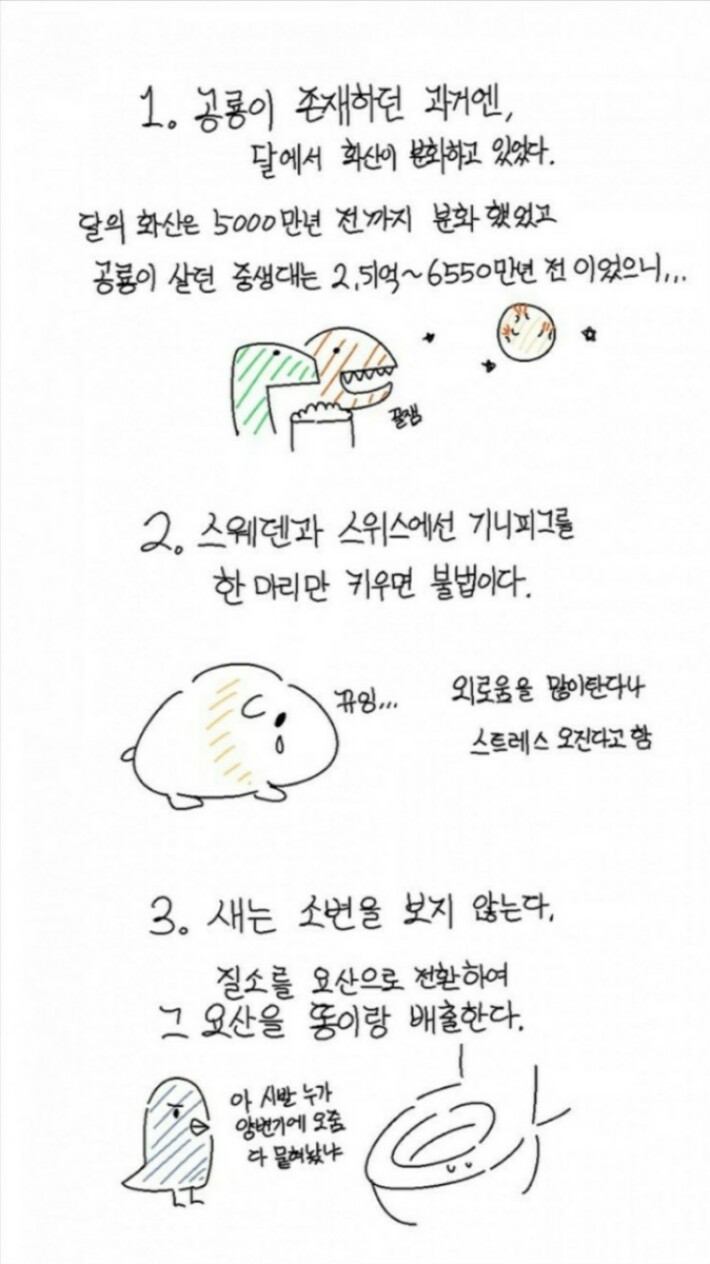 1. 공룡이 존재하던 과거엔,
달에서 화산이 분화하고 있었다.
달의 화산은 5000만년 전까지 분화 했었고
공룡이 살던 중생대는 2.51억~6550만년 전 이었으니...
꿀잼
2. 스웨덴과 스위스에선 기니피그를
한 마리만 키우면 불법이다.
뀨잉...
외로움을 많이탄다나
스트레스 오진다고 함
3. 새는 소변을 보지 않는다.
질소를 요산으로 전환하여
그 요산을 똥이랑 배출한다.
아 시발 누가
양변기에 오줌
다 묻혀놨냐